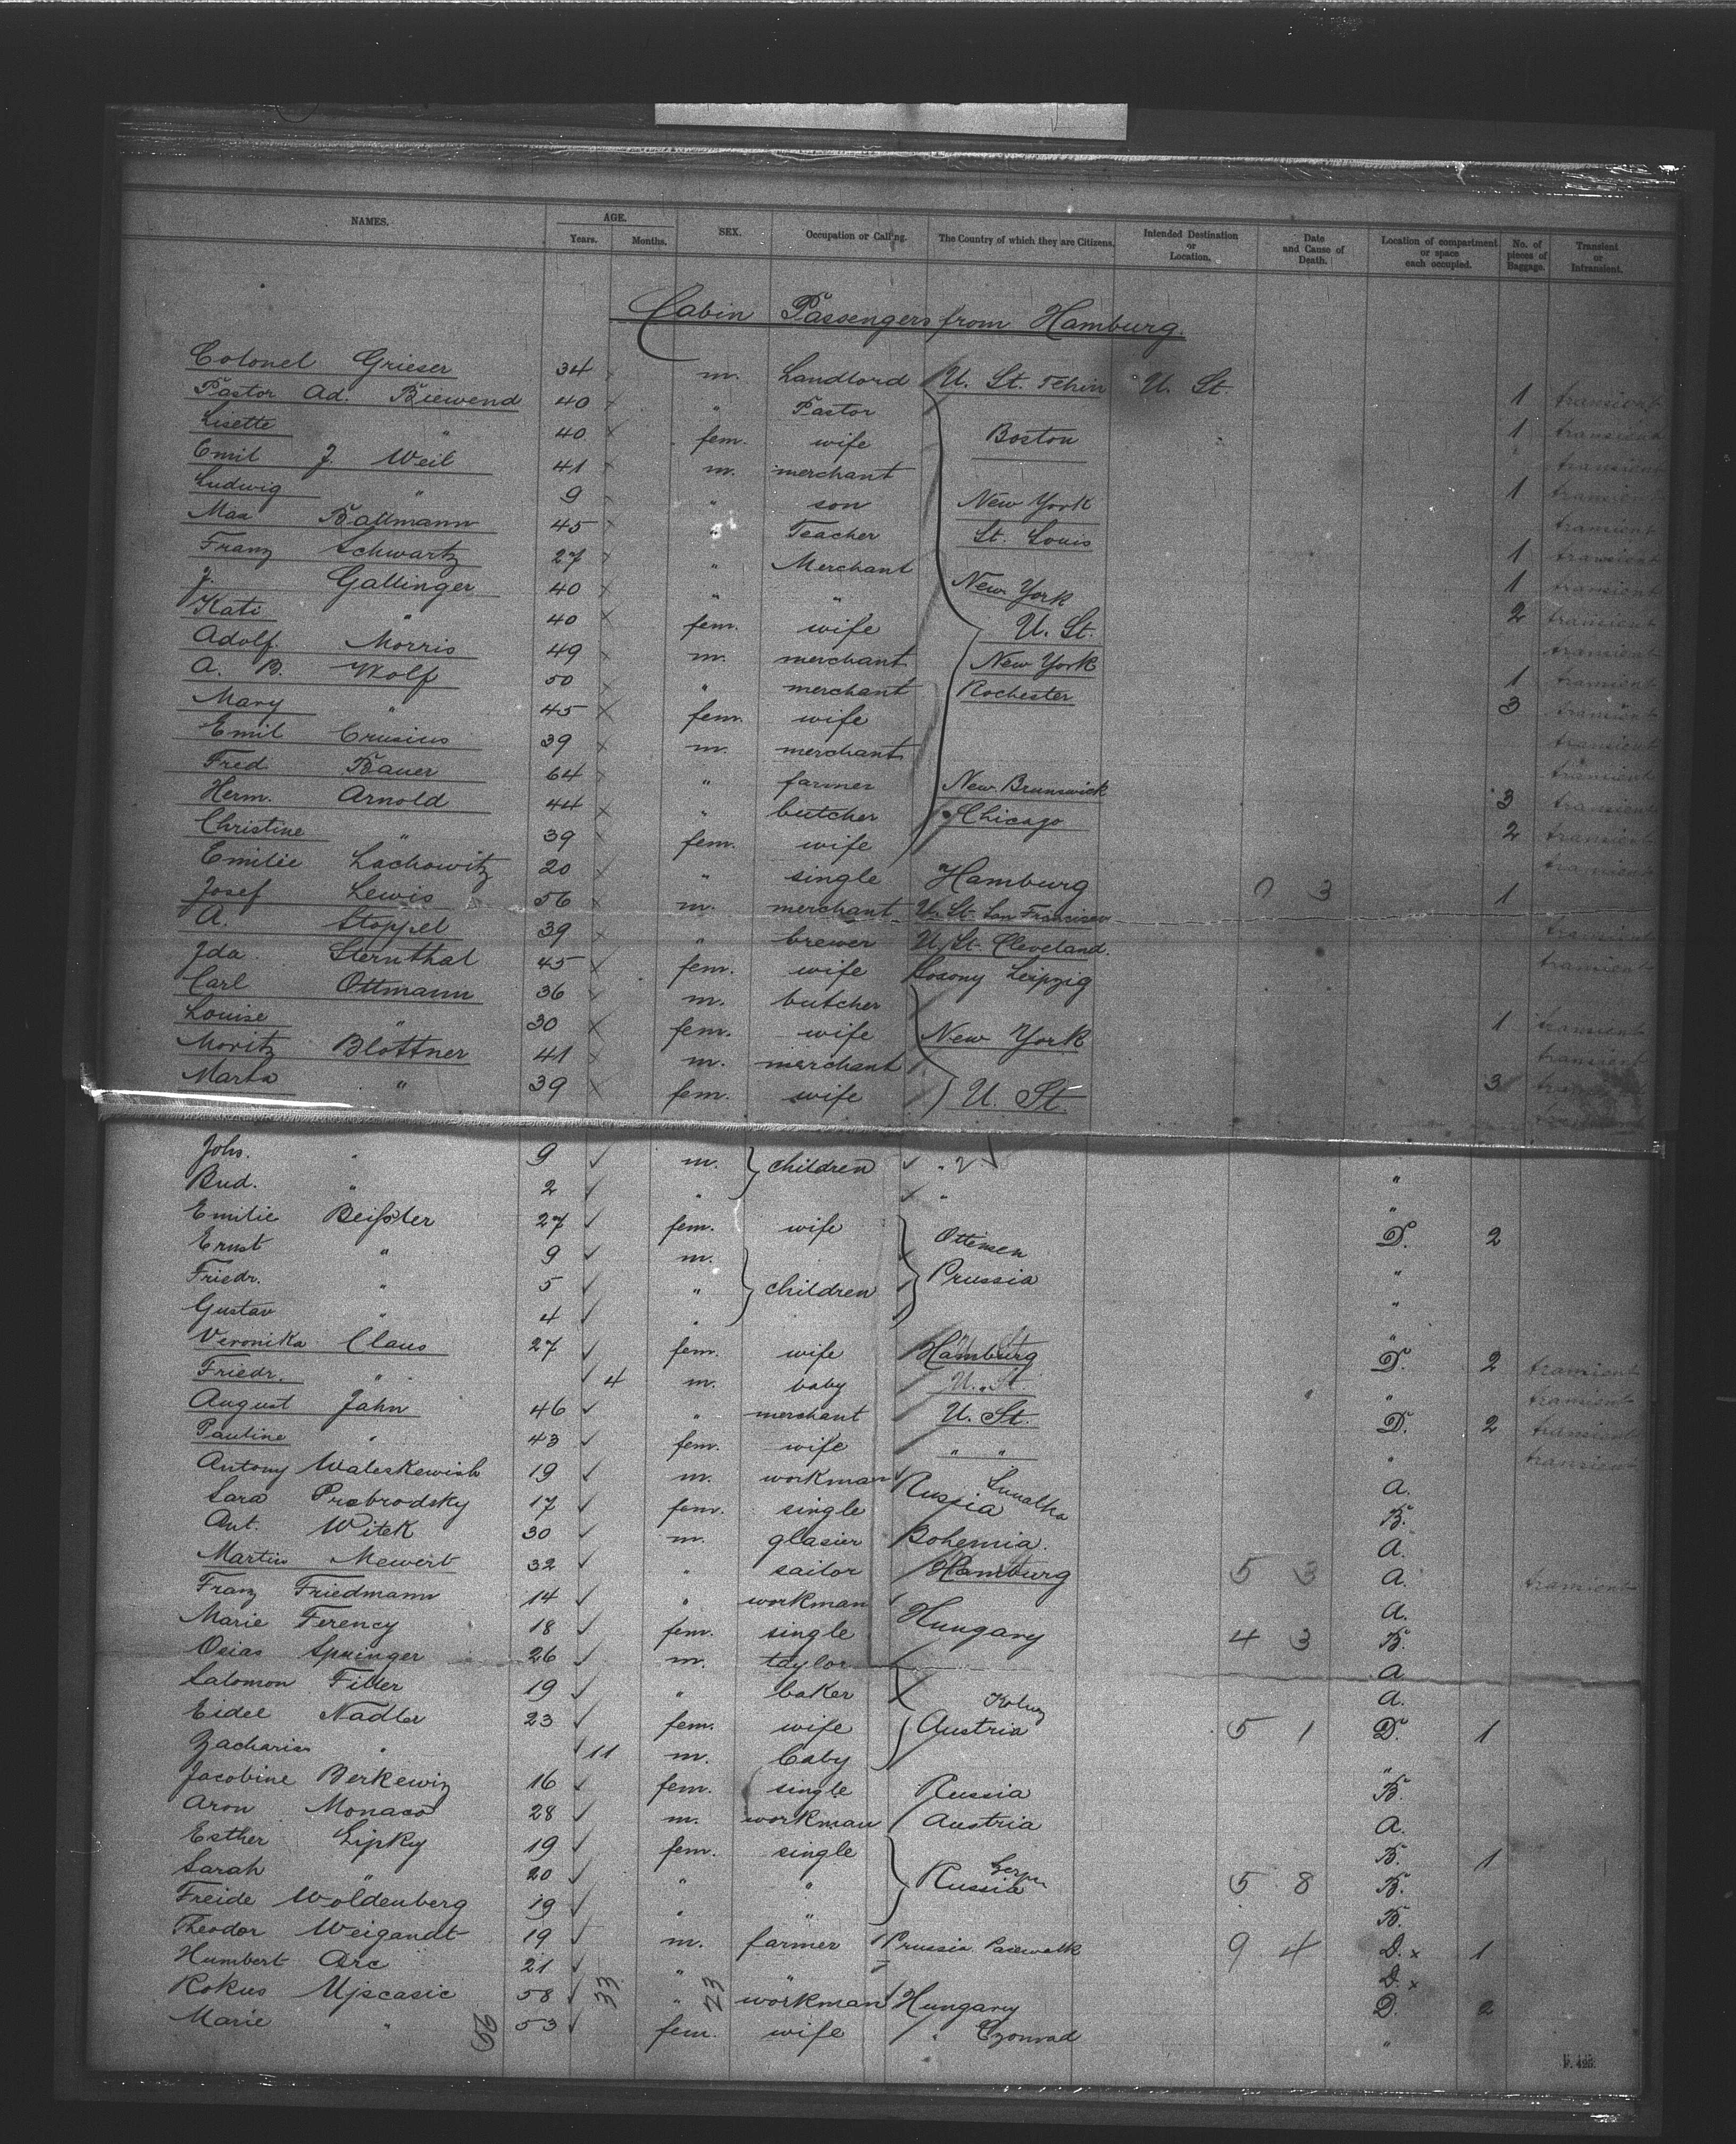 NAMES. AGE. Years. Months. SEX. Occupation or Calling. The Country of which they are Citizens. Intended Destination or Location. Date and Cause of Death. Location of compartment or space each occupied. No. of pieces of Baggage. Transient or Intransient.
Cabin Passengers from Hamburg.
Colonel Grieser 34 m. Landlord U. St. U. St. 1 transient
Pastor Ad. Biewend 40 " Pastor 1 transient
Lisette " 40 fem. wife Boston transient
Emil J. Weil 41 m. merchant 1 transient
Ludwig " 9 " son New York transient
Max Battmann 45 " Teacher St. Louis 1 transient
Franz Schwartz 27 " Merchant 1 transient
J. Gallinger 40 " " New York 2 transient
Kati " 40 fem. wife U. St. transient
Adolf Morris 49 m. merchant New York 1 transient
A. B. Wolf 50 " merchant Rochester 3 transient
Mary " 45 fem. wife transient
Emil Crusius 39 m. merchant transient
Fred Bauer 64 " farmer New Brunswick 3 transient
Herm. Arnold 44 " butcher Chicago 2 transient
Christine " 39 fem. wife transient
Emilie Lachowitz 20 " single Hamburg 0 3 1
Josef Lewis 56 m. merchant U. St. San Francisco transient
A. Stoppel 39 " brewer U. St. Cleveland. transient
Ida Sternthal 45 fem. wife Leipzig
Carl Ottmann 36 m. butcher 1 transient
Louise " 30 fem. wife New York transient
Moritz Blottner 41 m. merchant 3 transient
Marta " 39 fem. wife U. St.
Johs. " 9 m. children " "
Bud. " 2 " " "
Emilie Beißler 27 fem. wife Ottensen D. 2
Ernst " 9 m. Prussia "
Friedr. " 5 " children "
Gustav " 4 " "
Veronika Claus 27 fem. wife Hamburg D. 2 transient
Friedr. " 4 m. baby U. St. " transient
August Jahn 46 " merchant U. St. D. 2 transient
Pauline " 43 fem. wife " " " transient
Antony Waleskewish 19 m. workman Russia A.
Sara Probrodsky 17 fem. single B.
Ant. Witek 30 m. glasier Bohemia. A.
Martin Mewert 32 " sailor Hamburg 5 3 A. transient
Franz Friedmann 14 " workman Hungary A.
Marie Ferency 18 fem. single 4 3 B.
Osias Springer 26 m. taylor A.
Salomon Filler 19 " baker A.
Eidel Nadler 23 fem. wife Austria 5 1 D. 1
Zacharias " 11 m. baby "
Jacobine Berkewiz 16 fem. single Russia B.
Aron Monaso 28 m. workman Austria A.
Esther Lipky 19 fem. single B. 1
Sarah " 20 " " Russia 5 8 B.
Freide Woldenberg 19 " " B.
Theodor Weigandt 19 m. farmer Prussia Pasewalk 9 4 D. x 1
Humbert Arc 21 " D. x
Rokus Ujscasic 58 33 " 23 workman Hungary D. 2
Marie " 56 53 fem. wife " Czonrad "
V. 425.